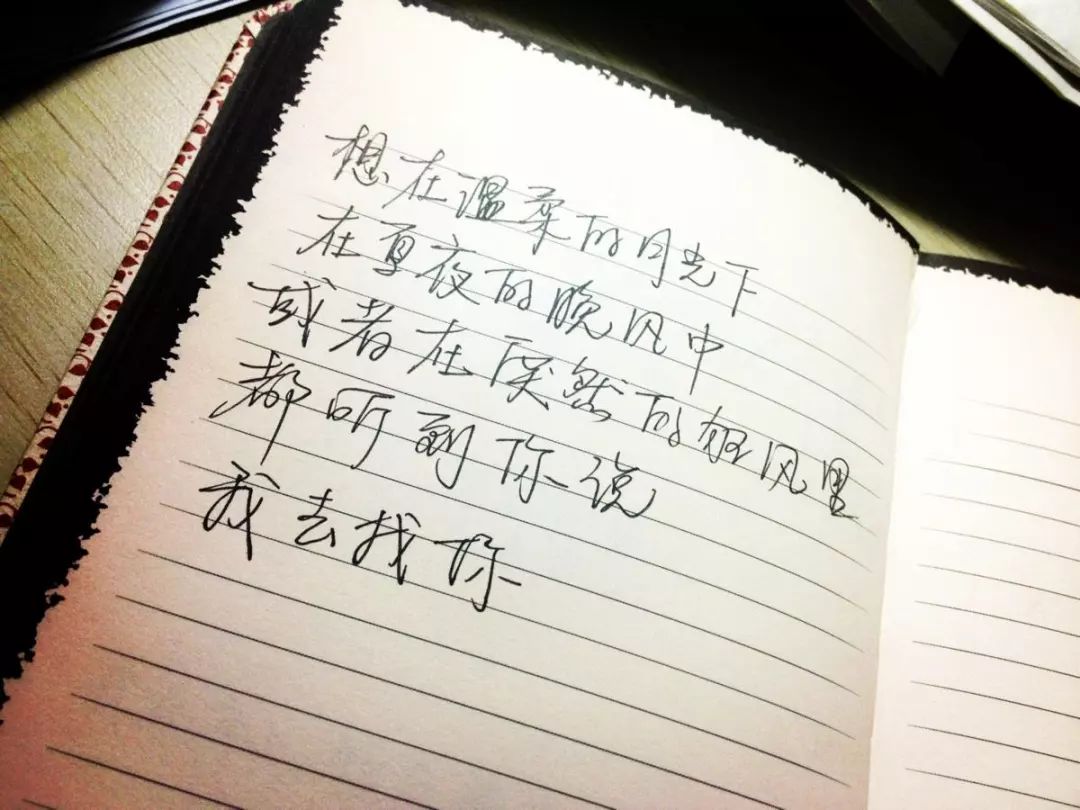 想在温柔的月光下
在夏夜的晚风中
或者在突然的狂风里
都听到你说
我去找你